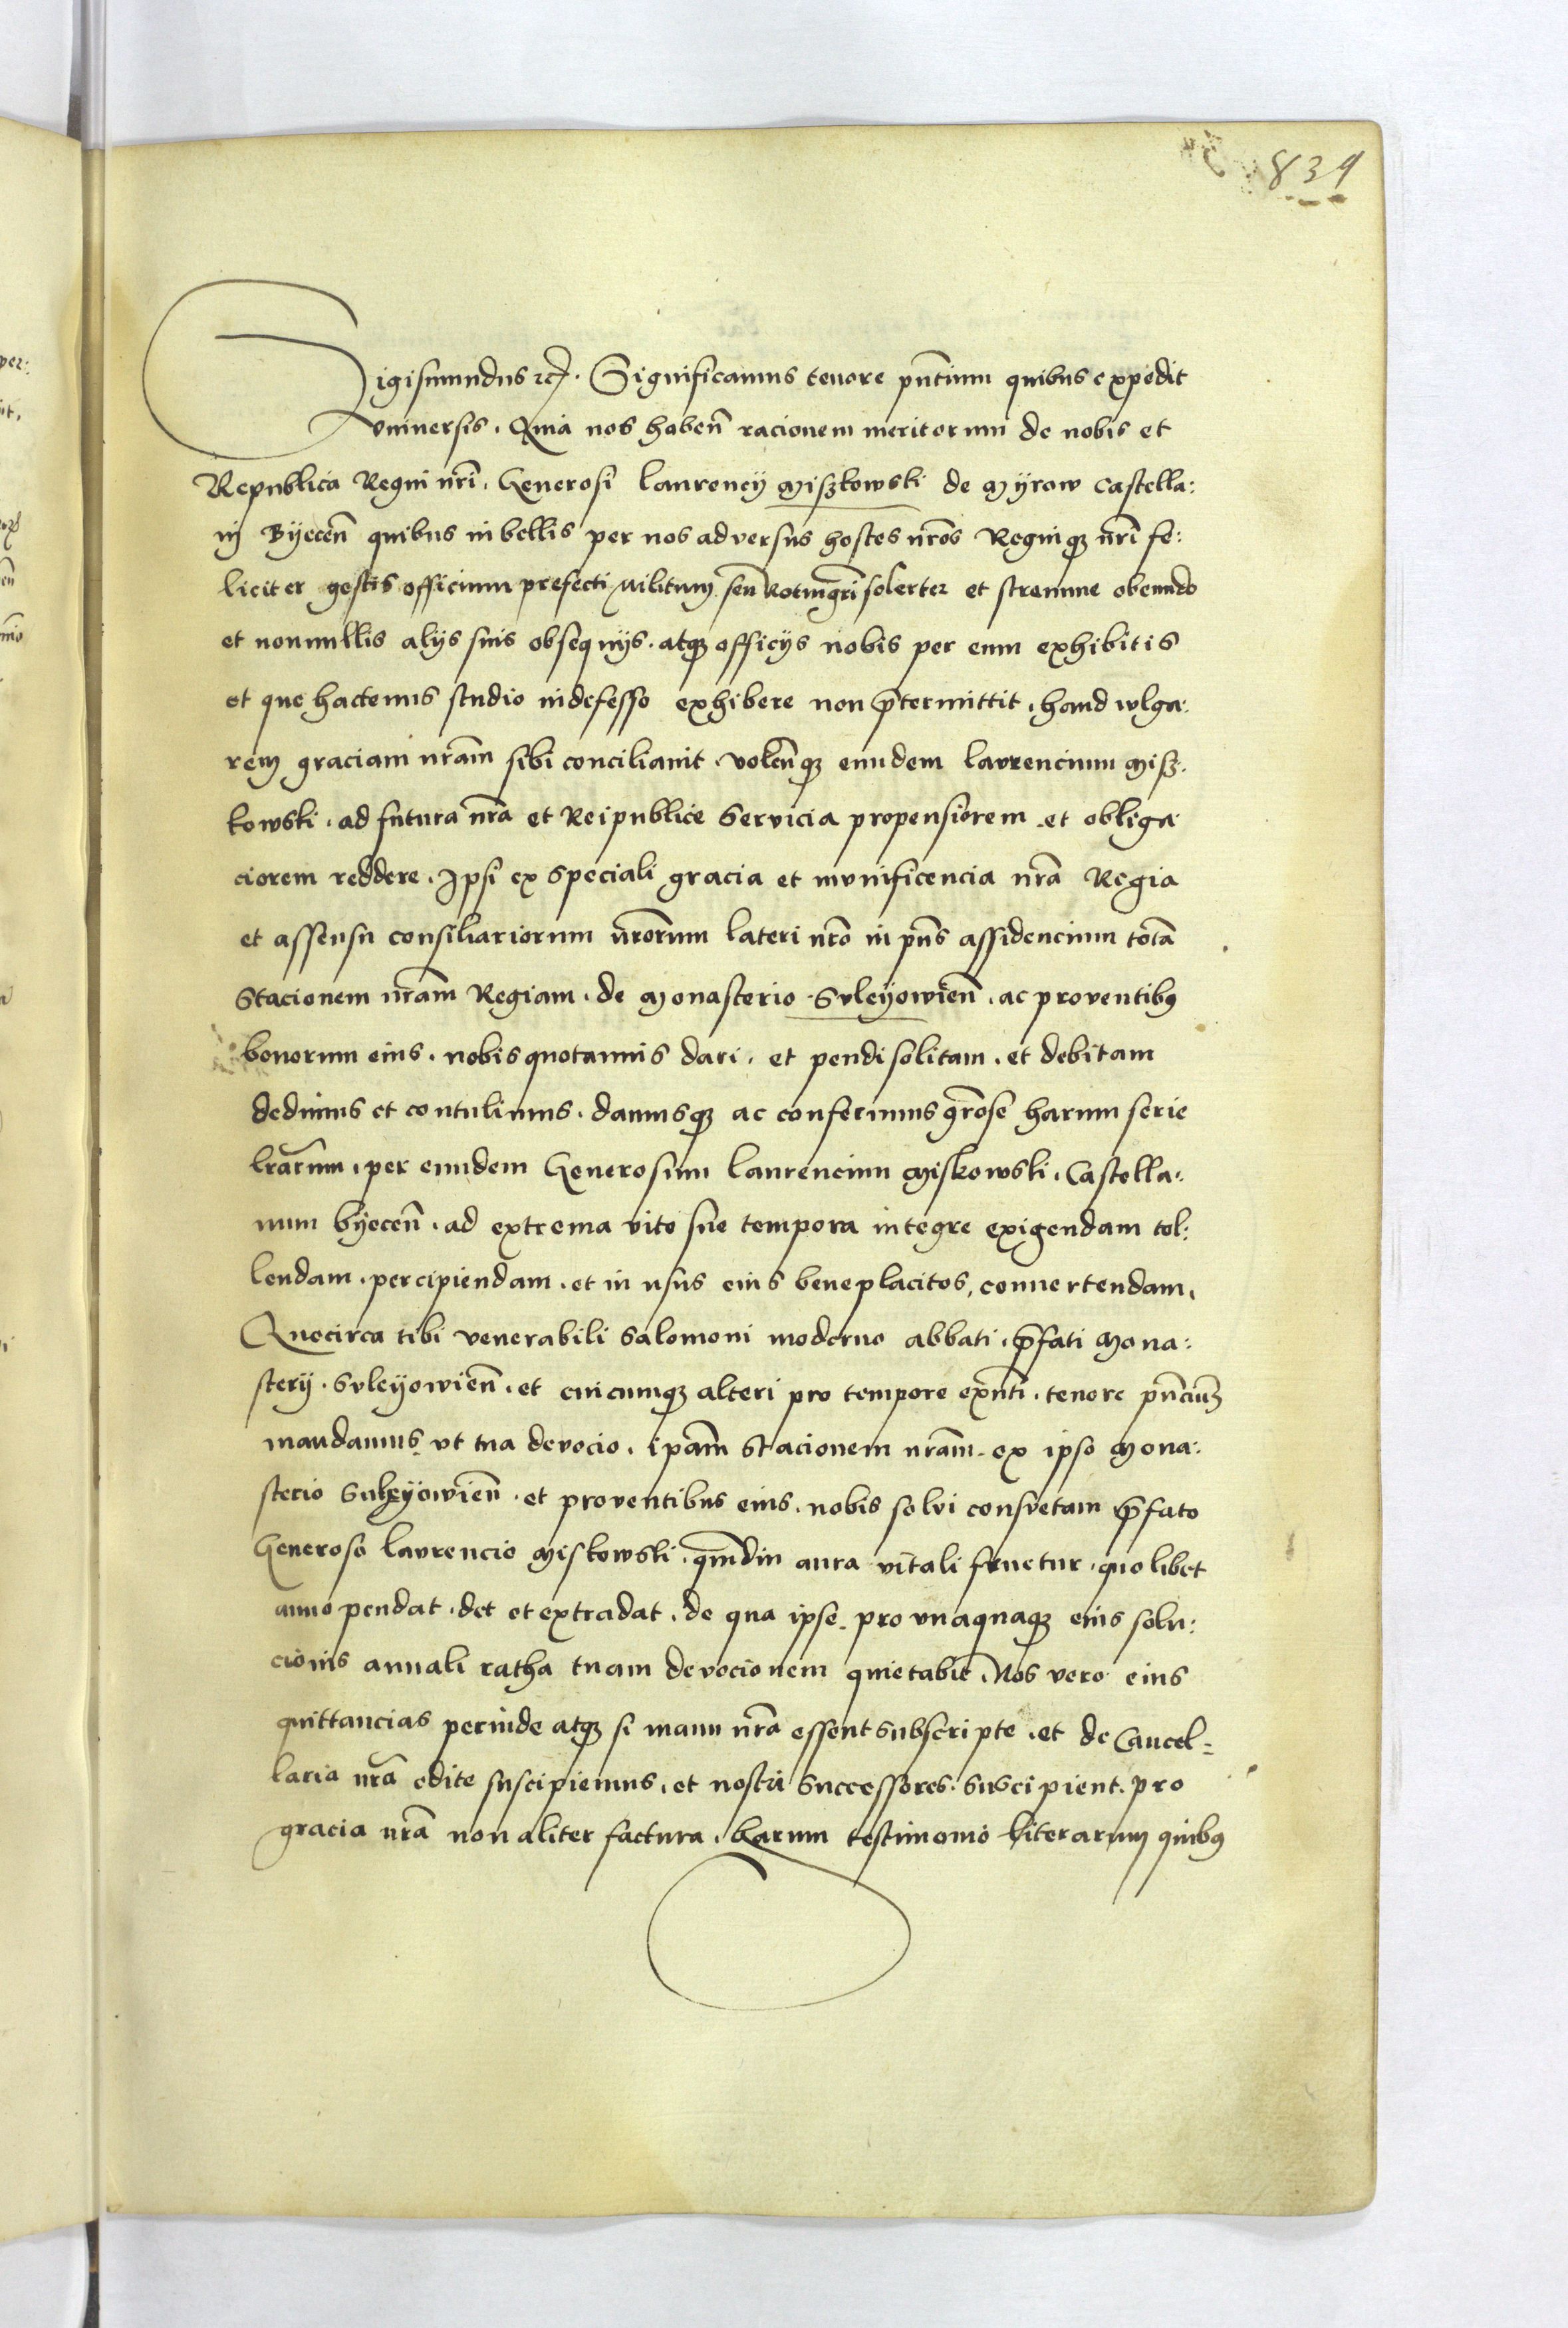 839
Sigismundus etc. Significamus tenore pñtium quibus expedit
vniuersis. Quia nos habeñ racionem meritorum de nobis et
Republica Regni nrĩ. Generosi laurencÿ Miszkowski de Mÿrow Castella:
nj Bÿeceñ quibus in bellis per nos adversus hostes nrõs Regniqz nrĩ fe:
liciter gestis officium prefecti militum seu Rotmgrĩ solerter et strennue obeundo
et nonnullis alÿs suis obsequÿs. atqz officÿs nobis per eum exhibitis
et que hactenus studio indefesso exhibere non p̃termittit. haud wlga:
rem graciam nrãm sibi conciliauit. volen̄qz eundem laurencium Misz:
kowski. ad futura nrã et Reipublice Servicia propensiorem et obliga
ciorem reddere. Ipsi ex speciali gracia et mvnificencia nrã Regia
et assensu consiliariorum nrõrum lateri nrõ in pñs assidencium totã
Stacionem nrãm Regiam. de Monasterio Svleÿowieñ. ac proventibꝫ
bonorum eius. nobis quotannis dari. et pendi solitam. et debitam
dedimus et contulimus. damusqz ac conferimus grõse harum serie
lrãrum. per eundem Generosum laurencium Miskowski. Castella:
num bÿeceñ. ad extrema vite sue tempora integre exigendam tol:
lendam. percipiendam. et in usus eius beneplacitos, conuertendam.
Quocirca tibi venerabili Salomoni moderno abbati. p̃fati Mona:
sterÿ. Svleÿowieñ. et cuicumqz alteri pro tempore exñti. tenore pñciuꝫ
mandamus vt tua devocio. ipãm Stacionem nrãm. ex ipso Mona:
sterio Suleÿowieñ. et proventibus eius. nobis solvi consvetam p̃fato
Generoso lavrencio Miskowski. qm̃diu aura vitali fruetur. quolibet
anno pendat. det et extradat. de qua ipse. pro vnaquaqz eius solu:
cionis annali ratha tuam devocionem quietabit. Nos vero eius
quittancias perinde atqz si manu nrã essent subscripte. et de Cancel=
laria nrã edite suscipiemus. et nostri Successores. suscipient. pro
gracia nrã non aliter factura. harum testimonio literarum quibꝫ